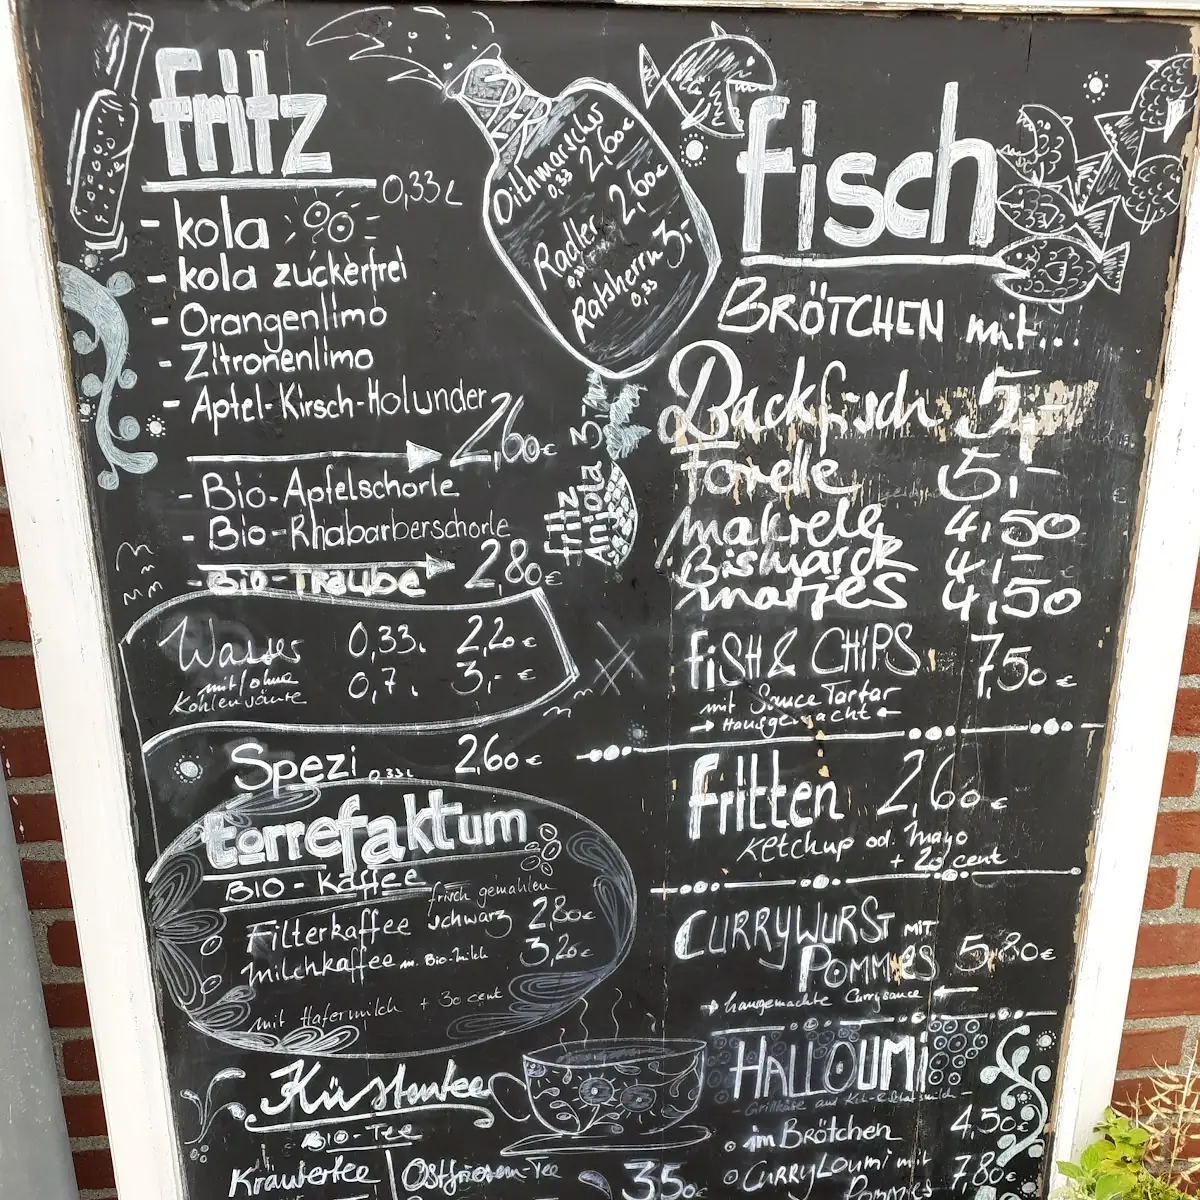 fritz
0,33 L
- kola
- kola zuckerfrei
- Orangenlimo
- Zitronenlimo
- Apfel-Kirsch-Holunder
2,60€
- Bio-Apfelschorle
- Bio-Rhabarberschorle
- Bio-Traube 2,80€
Wasser 0,33 2,20€
mit/ohne 0,7 3,- €
Kohlensäure
Spezi 0,33L 2,60€
torrefaktum
BIO-Kaffee
frisch gemahlen
Filterkaffee schwarz 2,80€
Milchkaffee m. Bio-Milch 3,20€
mit Hafermilch + 30 cent
Küstentee
BIO-TEE
Kräutertee Ostfriesen-Tee 3,50€
ODER
Dithmarscher
0,33 2,60€
Radler 2,60€
Ratsherrn 3,-
0,33
fritz
Anjola 3,-
fisch
BRÖTCHEN mit...
Backfisch 5,-
Forelle 5,-
Makrele 4,50
Bismarck 4,-
Matjes 4,50
FISH & CHIPS 7,50€
mit Sauce Tartar
→ Hausgemacht ←
fritten 2,60€
Ketchup od. Mayo
+ 20 cent
CURRYWURST MIT
POMMES 5,80€
→ hausgemachte Currysauce ←
HALLOUMI
im Brötchen 4,50€
CURRYLOUMI mit 7,80€
Pommes